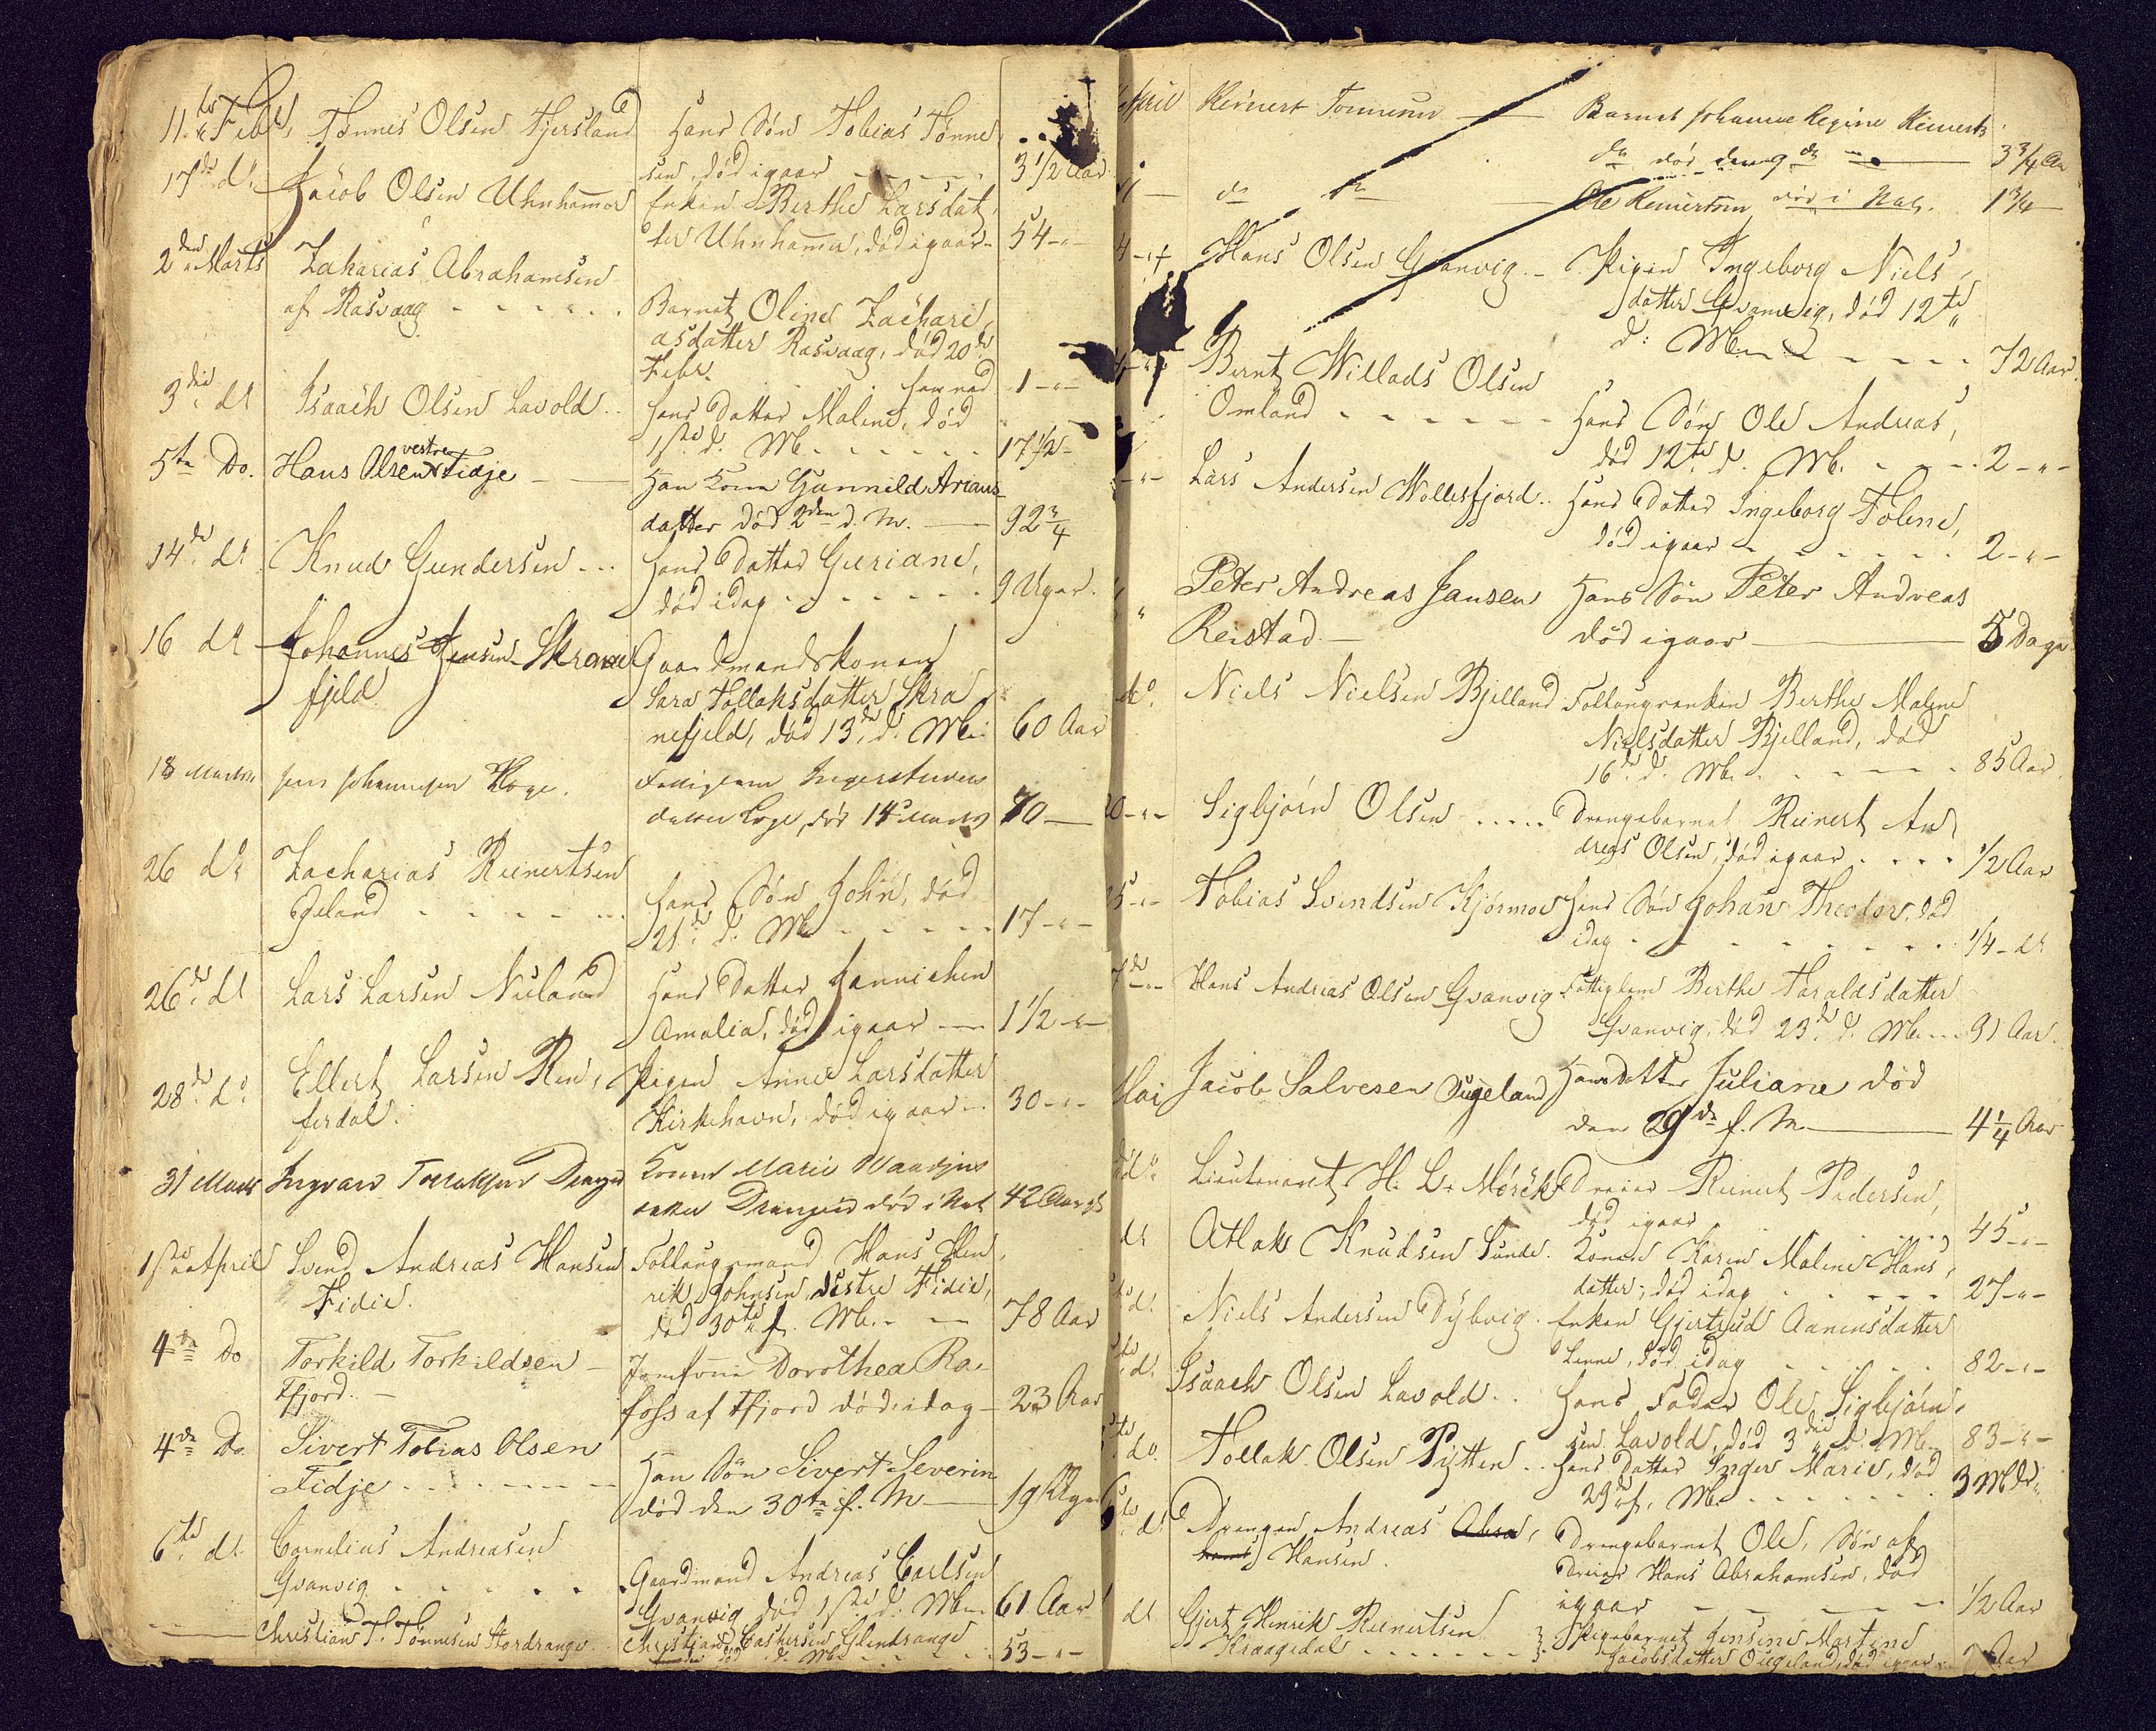 11te Febr, Tønnes Olsen Fjersland Hans Søn Tobias Tønne
sen, død igaar 3 1/2 Aar
17de do Jacob Olsen Uhnhammer Enken Berthe Larsdat,
ter Uhnhamer, død igaar 54 - " -
2den Marts Zakarias Abrahamsen
af Rasvaag Barnet Oline Zachari,
asdatter Rasvaag, død 20de
Febr. 1 - " -
3die dt Isaach Olsen Lavold Hans Datter Maline, død
1ste d. Mt. 17 1/2 -
5te Do. Hans Olsen vestre Fidje Han Kone Gunnild Arians
datter død 2den d. M. 92 3/4
14de dt Knud Gundersen Hans Datter Guriane,
død idag 9 Uger.
16 dt Johannes Jensen Skrane
fjeld Gaardmandskonen
Sara Tollaksdatter Skra
nefjeld, død 13de d. Mt. 60 Aar
18 Martii Jens Johannesen Hoge. Fattiglem
datter død 14de Marts 70
26 dt Zacharias Reinertsen
Egeland Hans Søn John, død
21de d. Mt. 17 - " -
26de dt Lars Larsen Nuland Hans Datter Jannichen
Amalia, død igaar 1 1/2 - " -
28de do Ellert Larsen Rør,
ferdal. Pigen Anne Larsdatter
Kirkehavn, død igaar 30 - " -
31 Marts Ingvar Tollaksen Drange Konen Marie
datter død i Nat 42 Aar
1ste April Svend Andreas Hansen
Fidie. Follaugsmand Hans Hen,
rik Johnsen, vestre Fidie,
død 30te f. Mt. 78 Aar
4de Do Torkild Torkildsen
Fjord. Jomfrue Dorothea Ra-
foss af Fjord død idag 23 Aar
4de Do. Sivert Tobias Olsen
Fidje Han Søn Sivert Severin
død den 30te f. M 19 Uger
6te dt Cornelius Andreasen
Gvanvig Gaardmand Andreas Carlsen
Gvanvig død 1ste d. Mt. 61 Aar
Christian T. Tønnesen Stordrange Christian Caspersen
død d. Mt. 53 - " -
April Reinert Tønnesen Barnet Johanne Regine Reinerts
dr død den 9de 3 3/4 Aar
do do Ole Reinertsen død i Nat. 1 3/4
Hans Olsen Gvanvig Pigen Ingeborg Niels,
datter Gvanvig, død 12te
d. Mt. 72 Aar.
Bernt Willads Olsen
Omland Hans Søn Ole Andreas,
død 12te d. Mt. 2 - " -
Lars Andersen Wollesfjord Hans Datter Ingeborg Toline,
død igaar 2 - " -
Peter Andreas Jansen
Reistad Hans Søn Peter Andreas
død igaar 5 Dage
do. Niels Nielsen Bjelland Follaugsenken Berthe Malene
Nielsdatter Bjelland, død
16de d. Mt. 85 Aar.
20 - " - Sigbjørn Olsen Drengebarnet Reinert An,
dreas Olsen, død igaar 1/2 Aar
25 - " - Tobias Svendsen Kjørmoe Hans Søn Johan Theodor, død
idag 1/4 - dt
7de - " - Hans Andreas Olsen Gvanvig Fattiglem Berthe Taraldsdatter
Gvanvig, død 23de d. Mt. 91 Aar.
Mai Jacob Salvesen Øugeland Hans datter Juliane død
den 29de f. M 4 1/4 Aar
do Lieutenant H. L. Mørch Dreier Reinert Pedersen,
død igaar 45 - " -
dt Atlak Knudsen Sunde. Konen Karen Maline Hans,
datter, død idag 27 - " -
do Niels Andersen Dybvig. Enken Gjertrud Aanensdatter
Lenne, død idag 82 - " -
d. Isaach Olsen Lavold Hans Fader Ole Sigbjørn,
sen Lavold, død 3die d. Mt. 83 - " -
do. Tollak Olsen Pytten Hans Datter Inger Marie, død
29de f. Mt. 3 Mdr.
6te dt Drengen Andreas Abra,
hams Hansen. Drengebarnet Ole, Søn af
Dreier Hans Abrahamsen, død
igaar 1/2 Aar
dt Gjert Henrik Reinertsen
Kraagedal Pigebarnet Jensine Martine
Jacobsdatter Øugeland, død igaar Aar